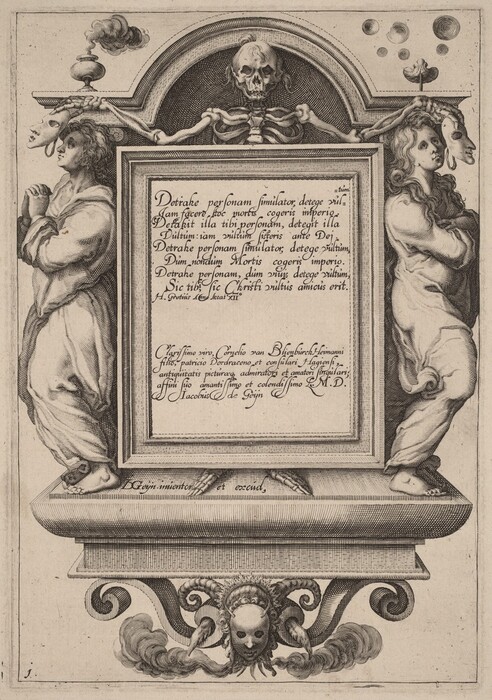 tum
Detrahe personam simulator, detege vul-
Iam facere hoc mortis cogeris imperio.
Detrahit illa tibi personam, detegit illa
Vultum: iam vultum sisteris ante Dei
Detrahe personam simulator, detege vultum,
Dum nondum Mortis cogeris imperio.
Detrahe personam, dum viuis detege vultum,
Sic tibi, sic Christi vultus amicus erit.
H. Grotius aetat XII
Clarissimo viro, Cornelio van Blijenburch Heimanni
filio, patricio Dordraceno, et consulari Hagiensi,
antiquitatis picturæq, admiratori et amatori singulari;
affini suo amantissimo et colendissimo L. M. D.
Iacobus de Geÿn
DGeijn inuentor et excud.
1.